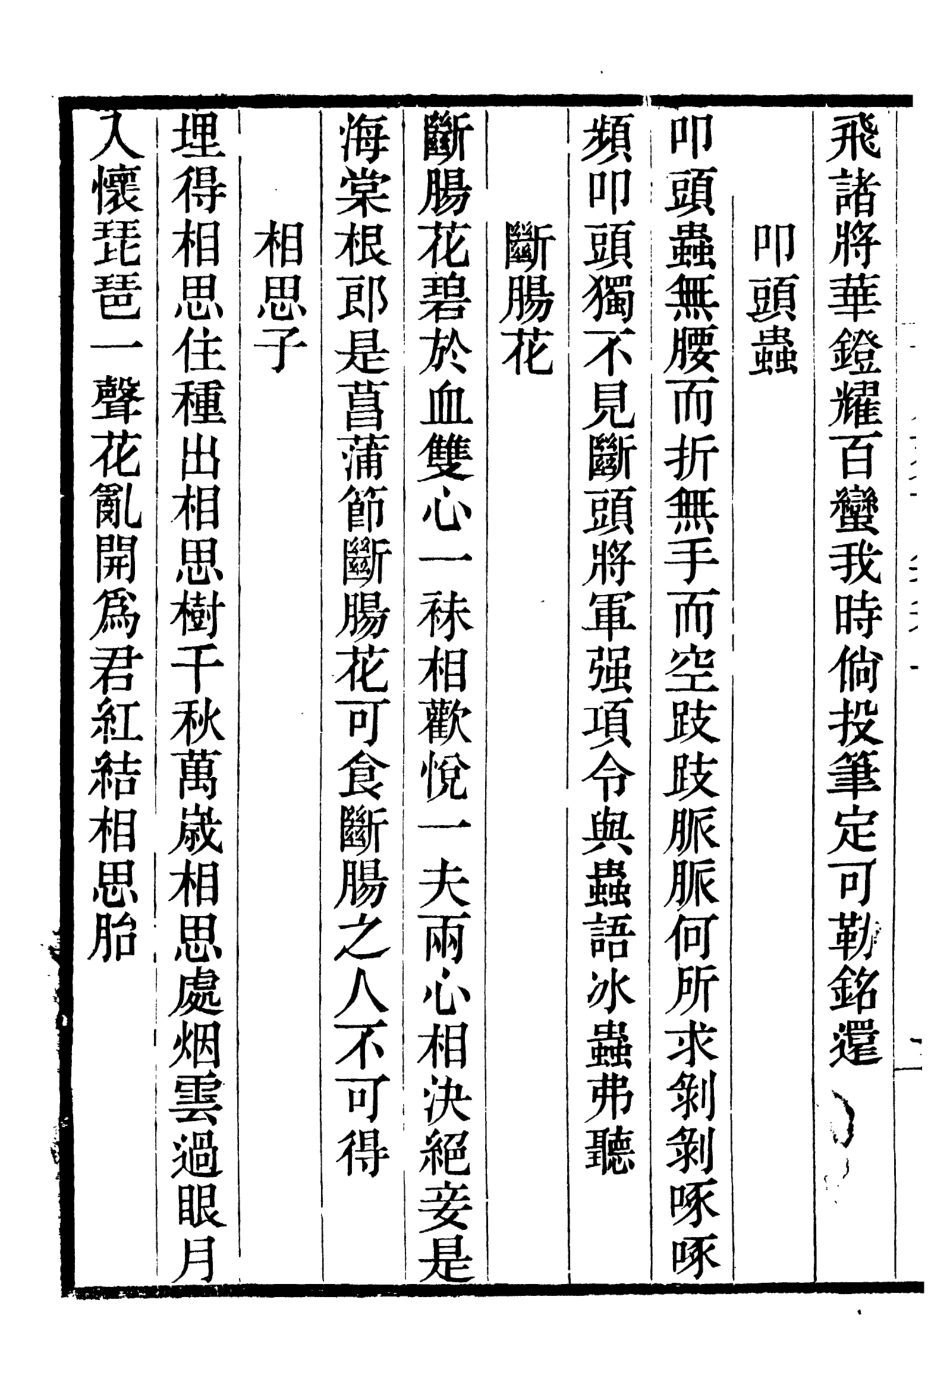 飛諸將華鐙耀百蠻我時倘投筆定可勒銘還
叩頭蟲
叩頭蟲無腰而折無手而空跂跂脈脈何所求剝剝啄啄
頻叩頭獨不見斷頭將軍强項令與蟲語冰蟲弗聽
斷腸花
斷腸花碧於血雙心一袜相歡悅一夫兩心相決絕妾是
海棠根郎是菖蒲節斷腸花可食斷腸之人不可得
相思子
埋得相思住種出相思樹千秋萬歲相思處烟雲過眼月
入懷琵琶一聲花亂開爲君紅結相思胎